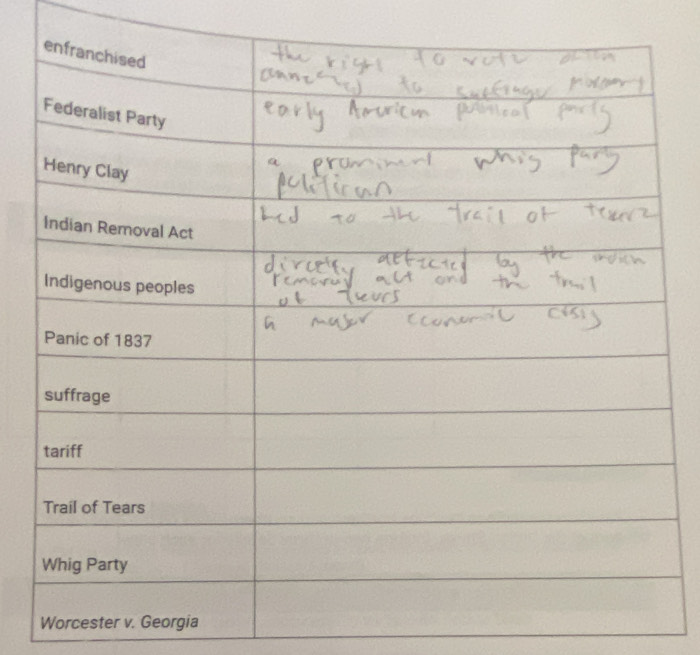 enfranchised
the right to vote often
connected to suffrage
Federalist Party
early American political party
Henry Clay
a prominent whig party
politician
Indian Removal Act
Led to the trail of tears
Indigenous peoples
directly affected by the
removal act and the trail
of tears
Panic of 1837
a major economic crisis
suffrage
tariff
Trail of Tears
Whig Party
Worcester v. Georgia